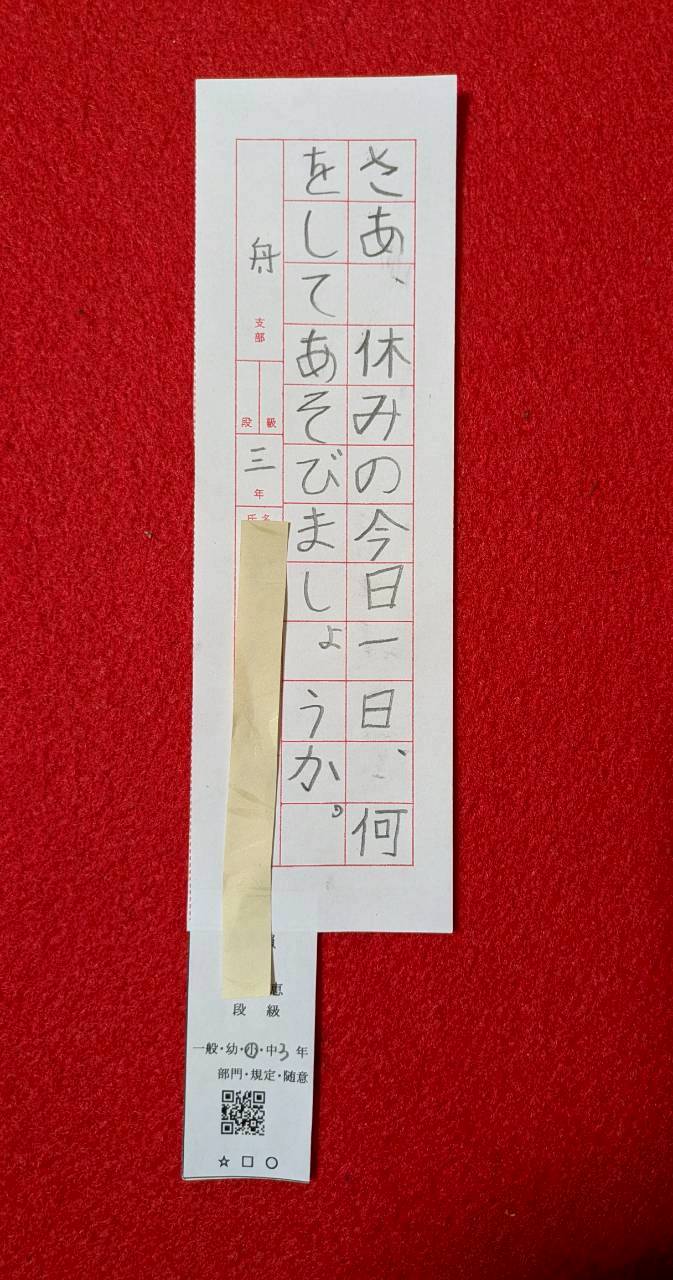 さあ、休みの今日一日、何
をしてあそびましょうか。
舟 支部
段 級
三 年
氏名
恵
段 級
一般・幼・小・中3年
部門・規定・随意
☆ □ ○